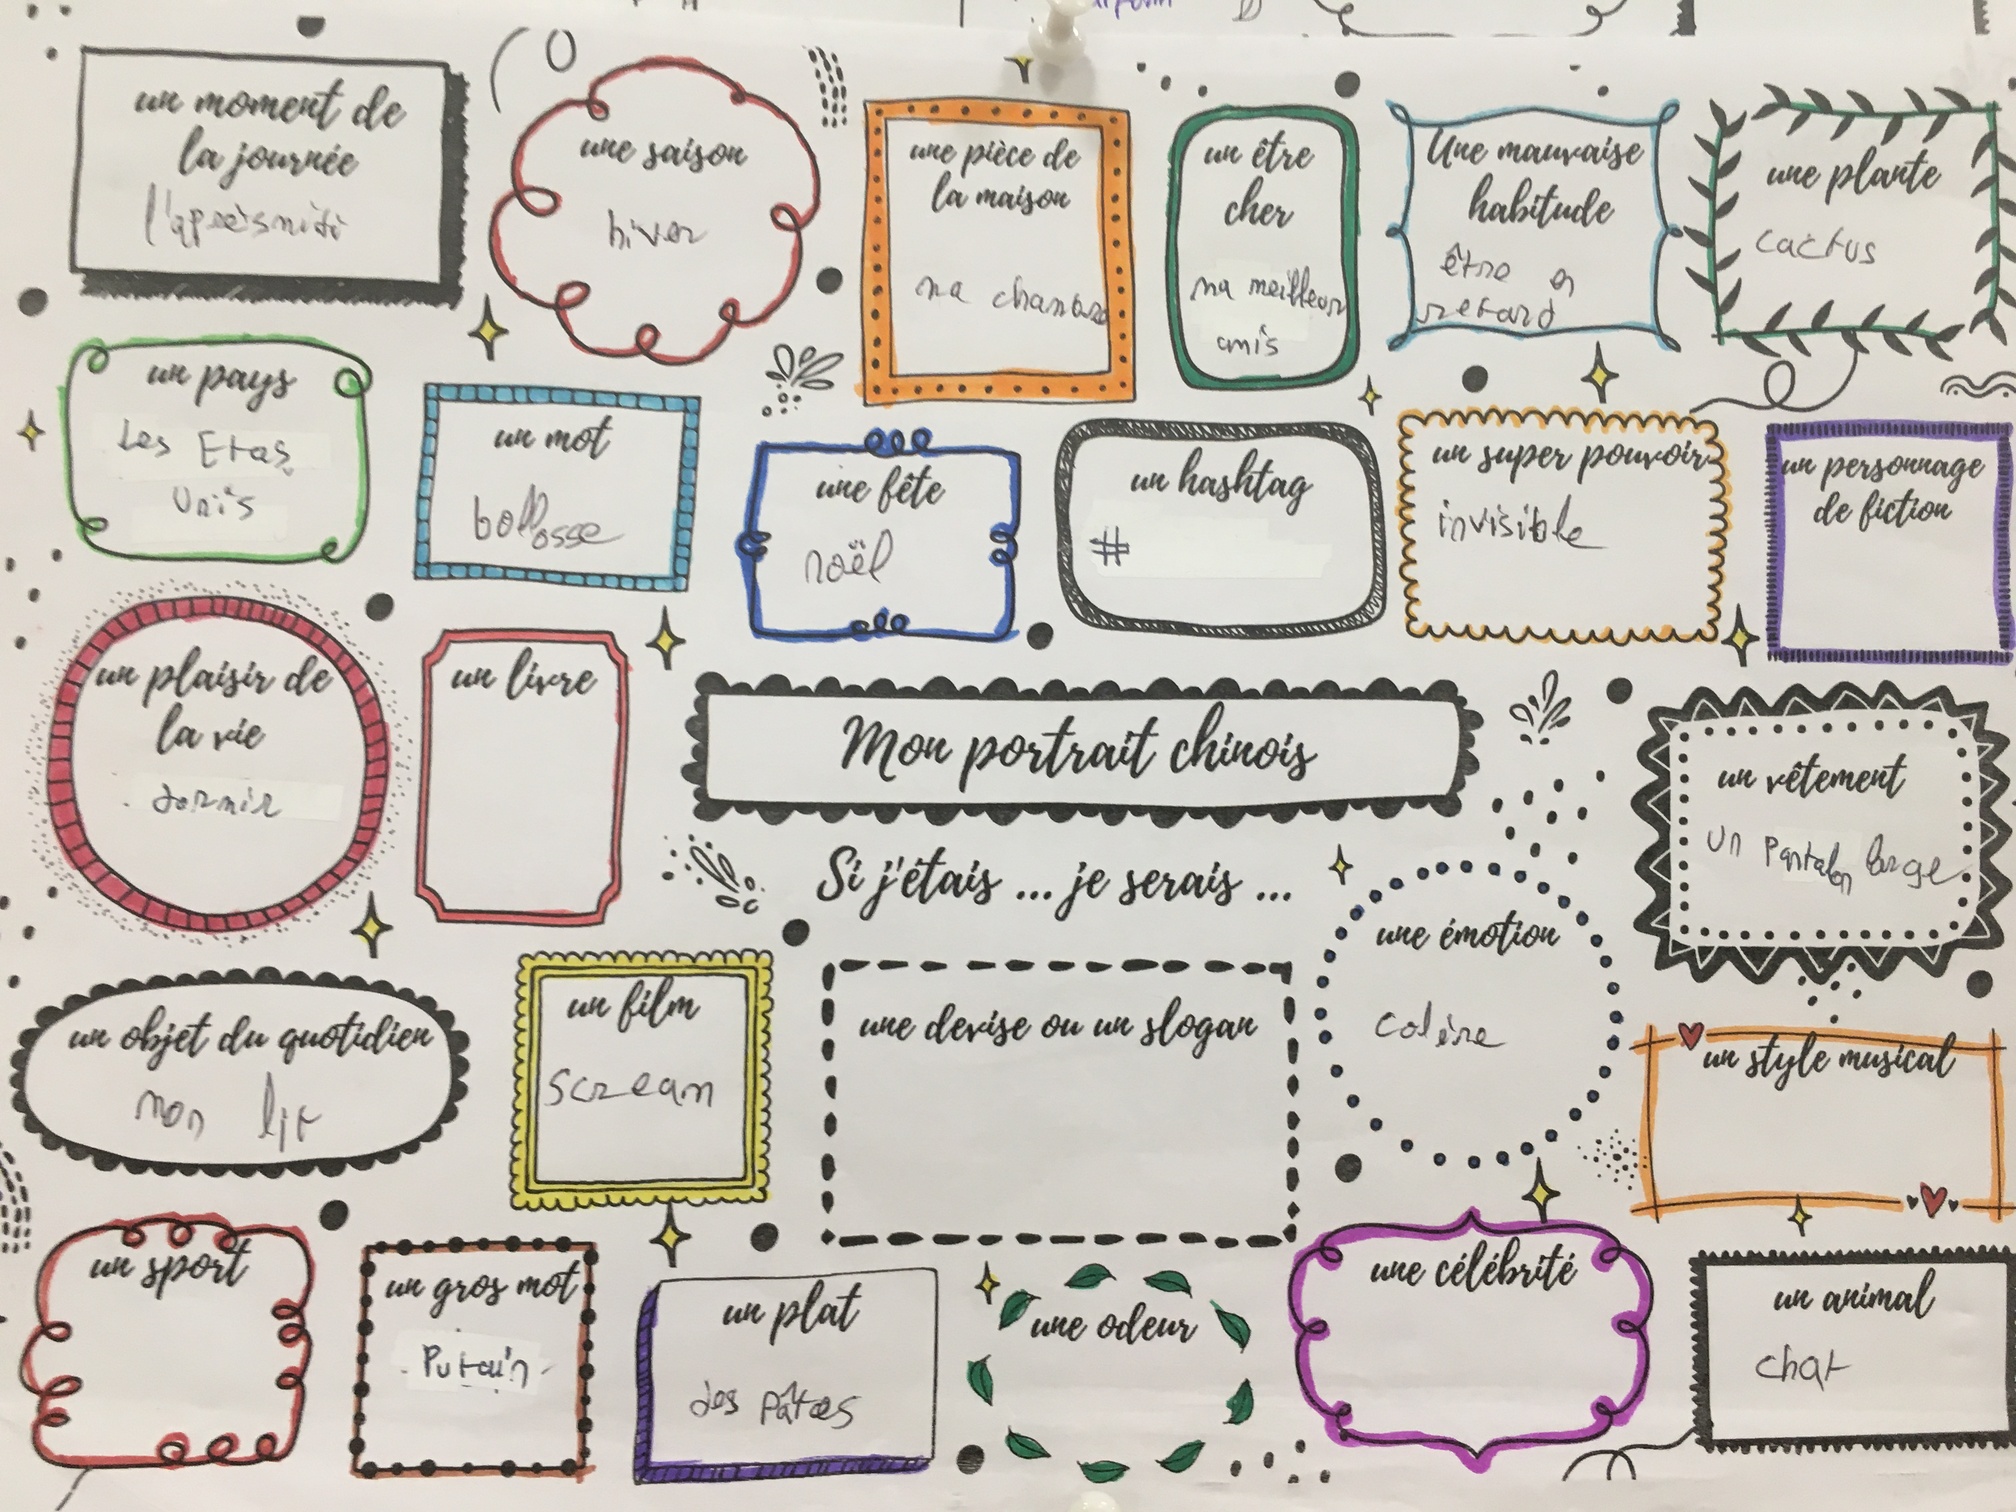 un moment de
la journée
l'aprèsmidi
une saison
hiver
une pièce de
la maison
ma chambre
un être
cher
ma meilleur
amis
Une mauvaise
habitude
être en
retard
une plante
cactus
un pays
Les Etas
Unis
un mot
bolosse
une fête
noël
un hashtag
#
un super pouvoir
invisible
un personnage
de fiction
un plaisir de
la vie
dormir
un livre
Mon portrait chinois
Si j'étais ... je serais ...
un vêtement
un pantalon large
une émotion
colère
un objet du quotidien
mon lit
un film
scream
une devise ou un slogan
un style musical
un sport
un gros mot
Putain
un plat
des pâtes
une odeur
une célébrité
un animal
chat